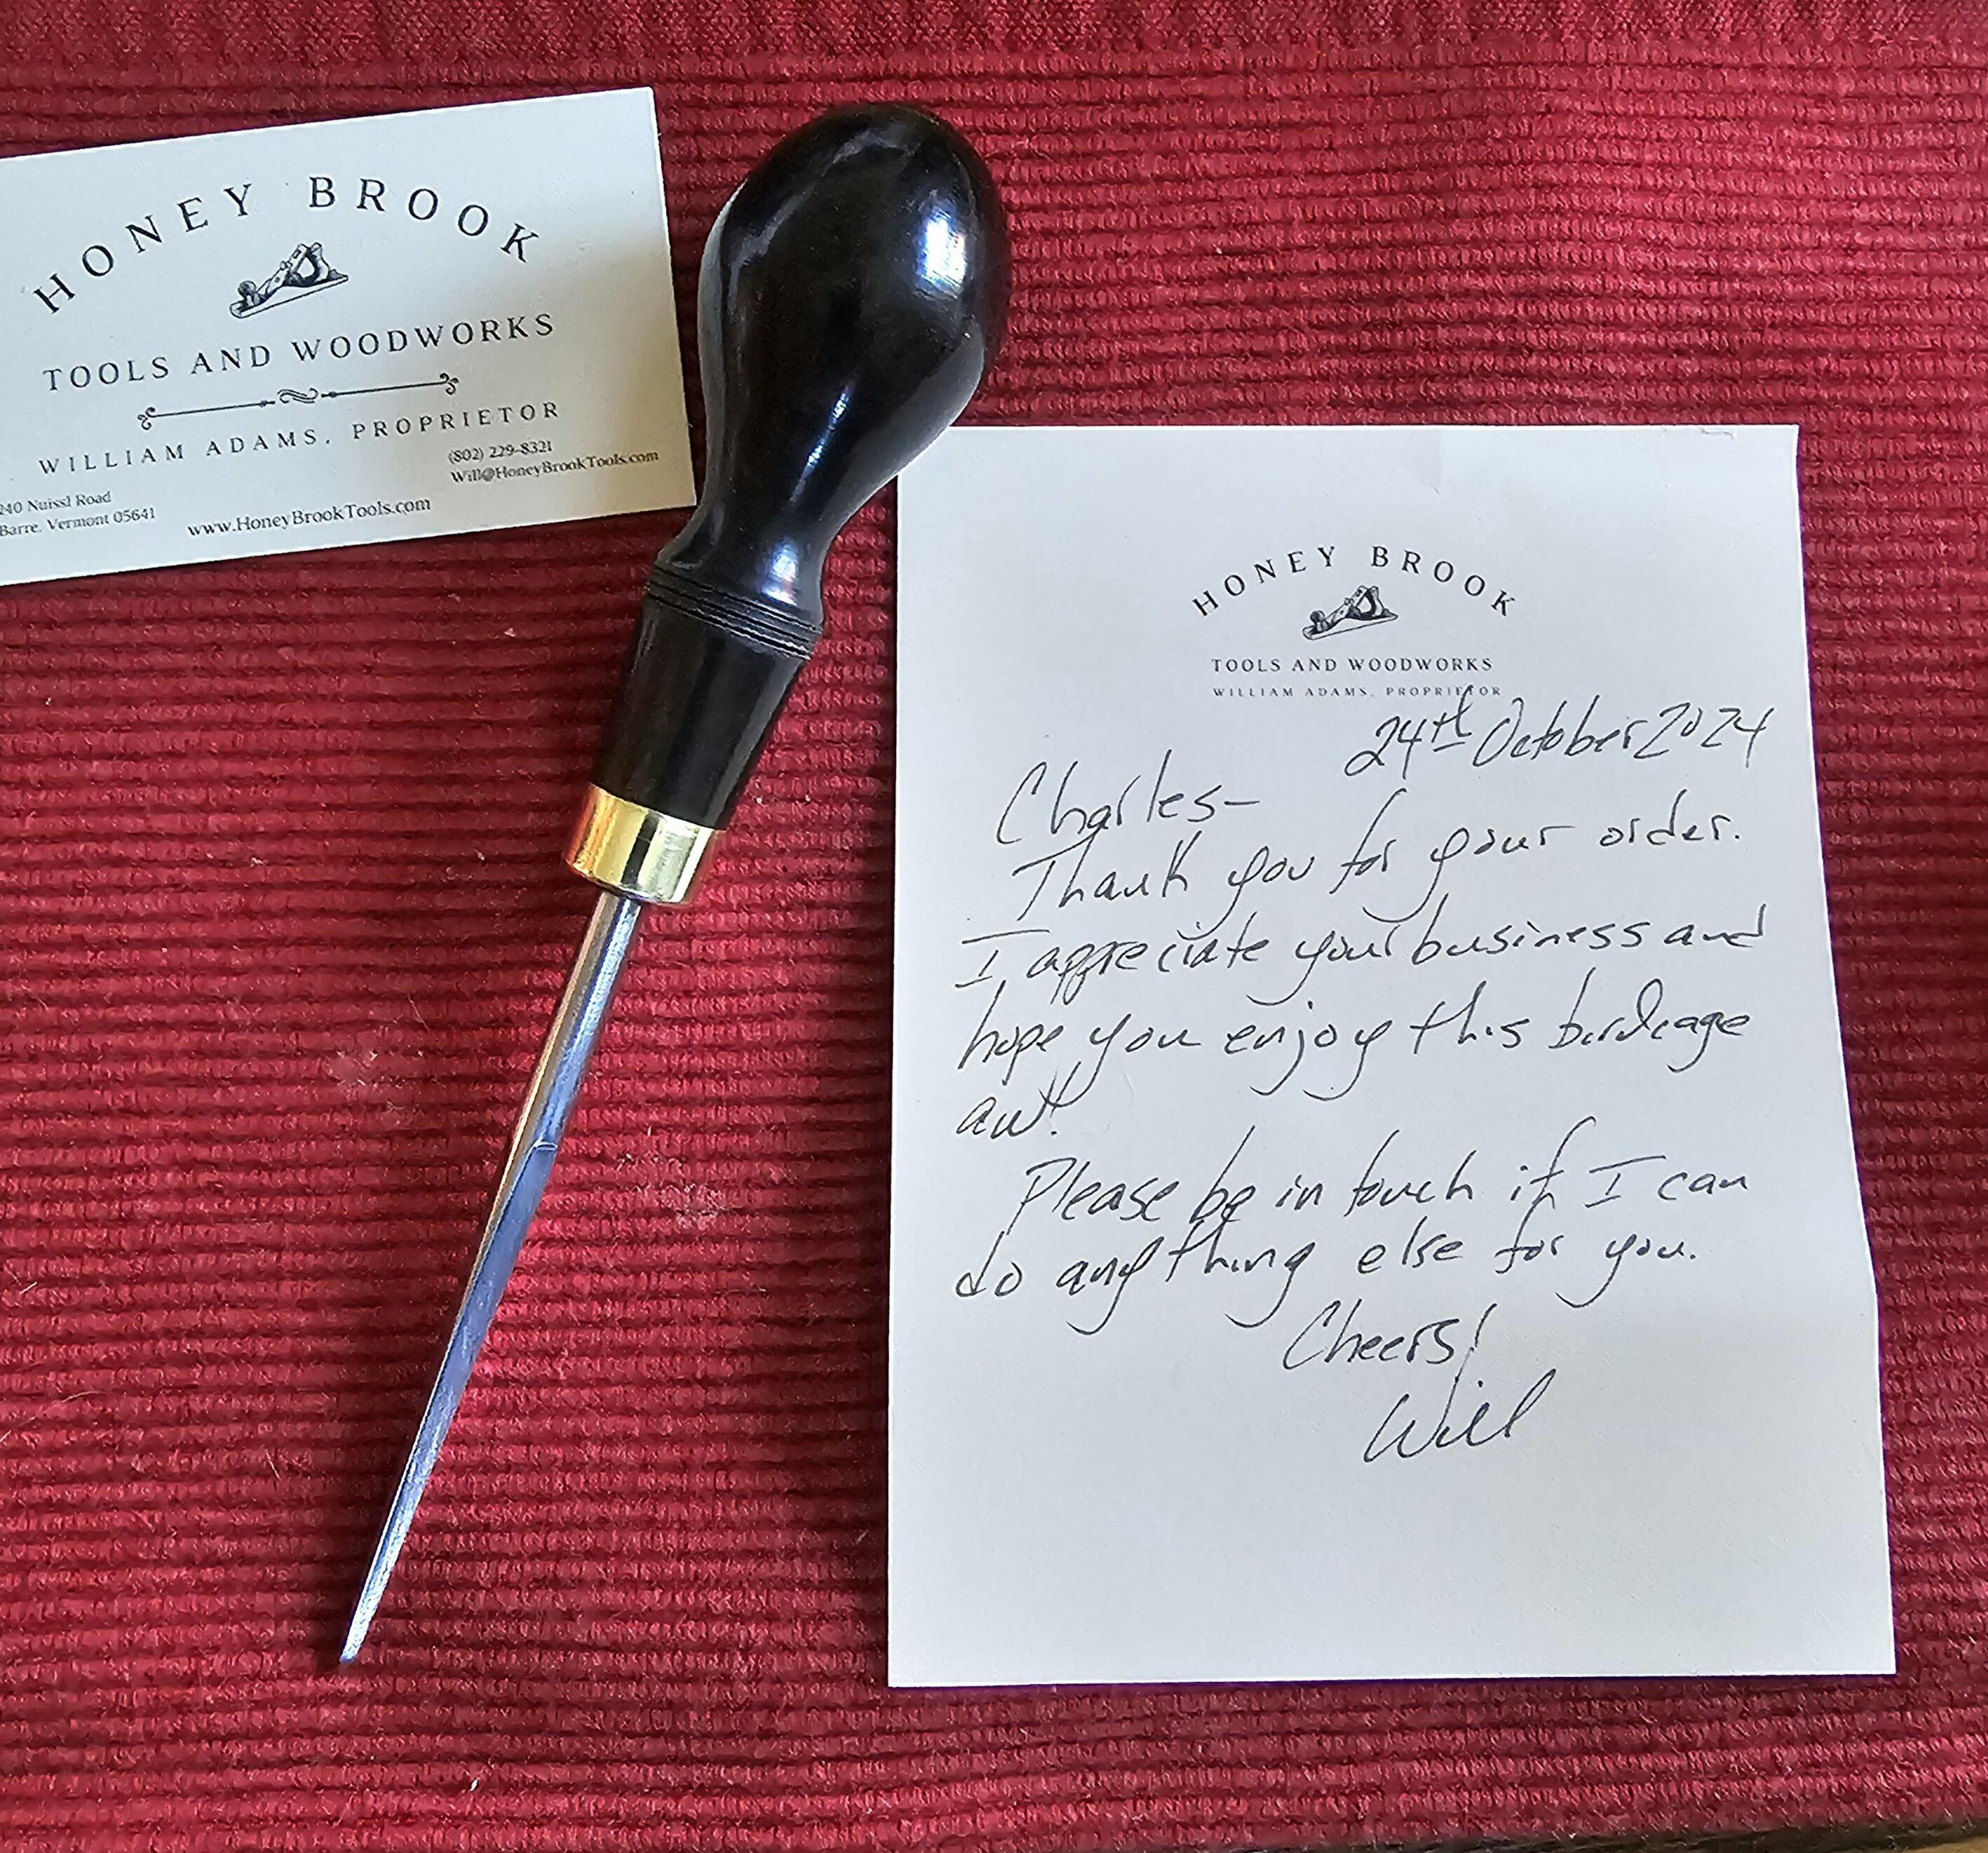 HONEY BROOK
TOOLS AND WOODWORKS
WILLIAM ADAMS, PROPRIETOR
(802) 229-8321
Will@HoneyBrookTools.com
240 Nuissl Road
Barre, Vermont 05641
www.HoneyBrookTools.com
HONEY BROOK
TOOLS AND WOODWORKS
WILLIAM ADAMS, PROPRIETOR
24th October 2024
Charles-
Thank you for your order.
I appreciate your business and
hope you enjoy this birdcage
awl!
Please be in touch if I can
do anything else for you.
Cheers!
Will